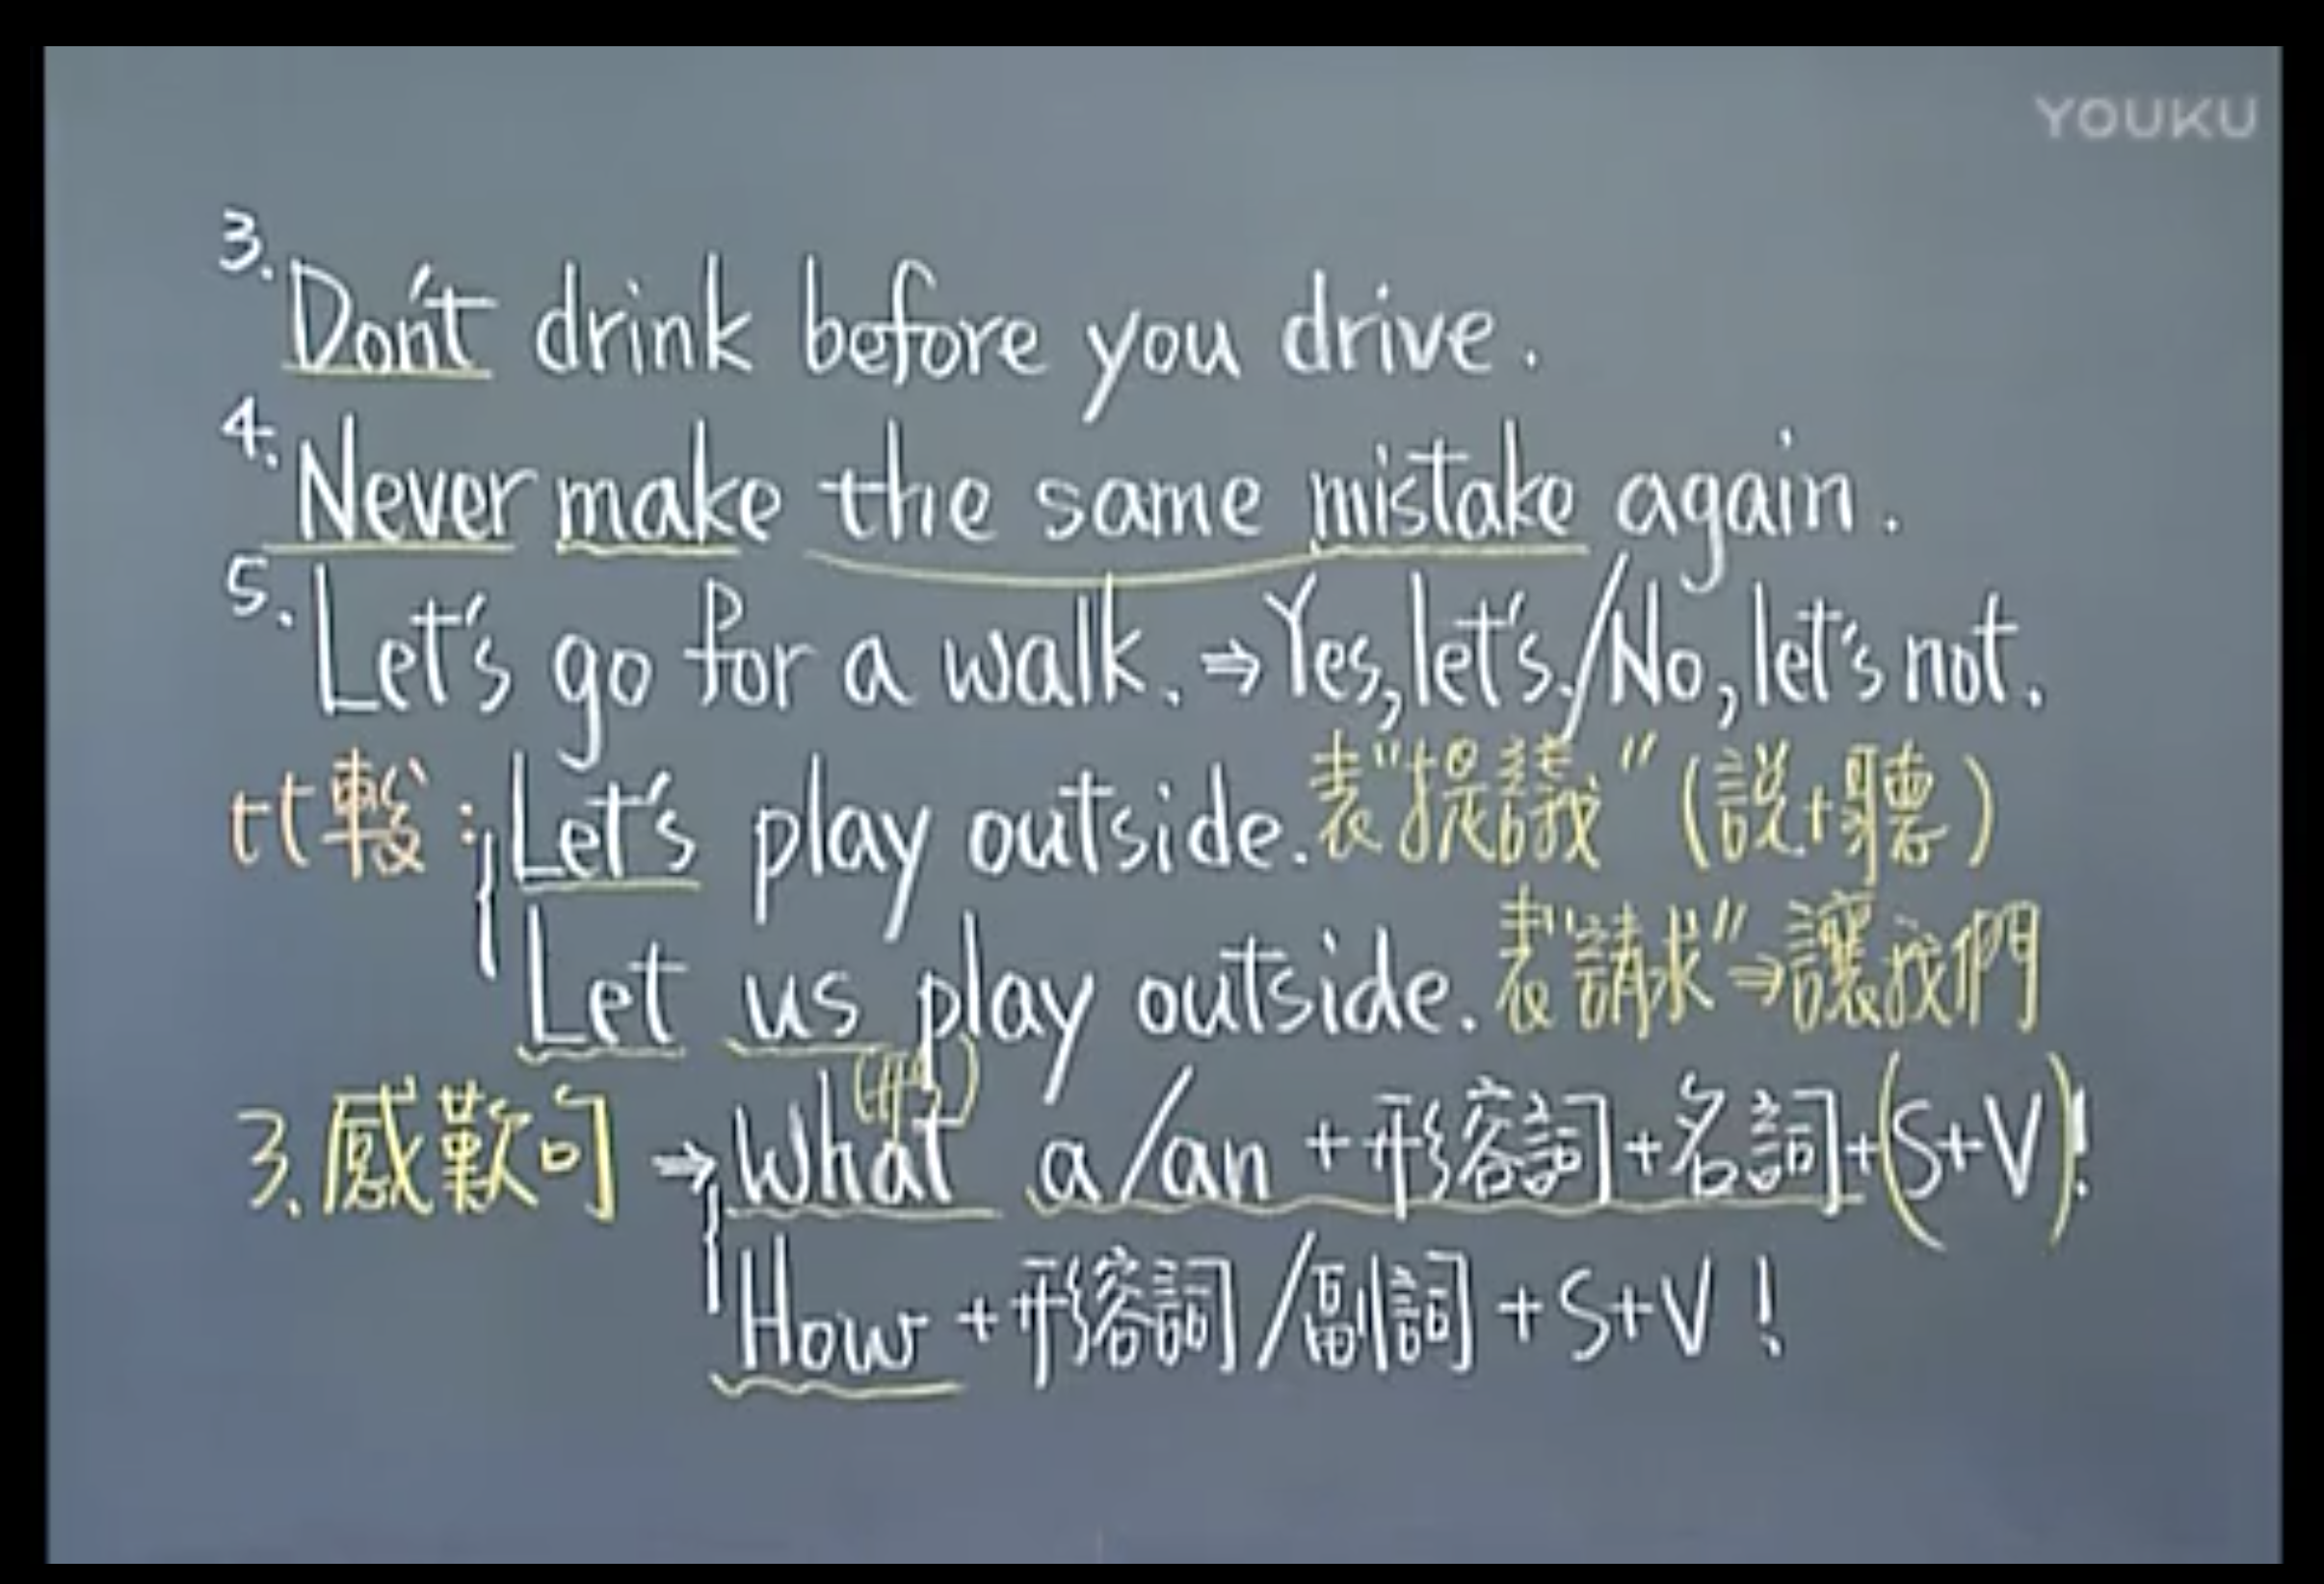 YOUKU
3. Don't drink before you drive.
4. Never make the same mistake again.
5. Let's go for a walk. ⇒ Yes, let's. / No, let's not.
比較: Let's play outside. 表"提議" (說+聽)
Let us play outside. 表"請求" ⇒ 讓我們
(形)
3. 感歎句 → What a/an + 形容詞 + 名詞 + (S+V)!
How + 形容詞/副詞 + S+V!